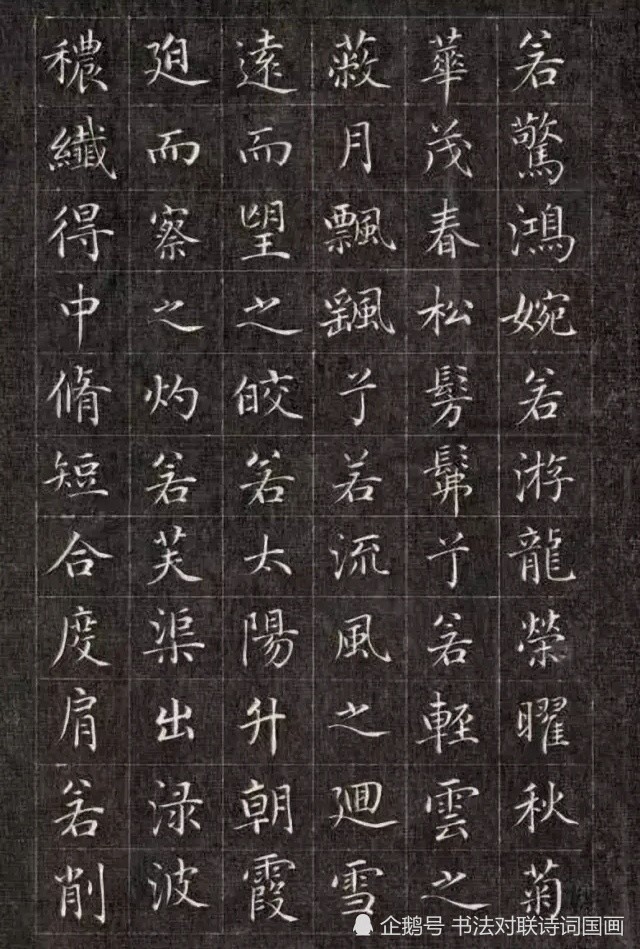 若驚鴻婉若游龍榮曜秋菊
華茂春松髣髴兮若輕雲之
蔽月飄飖兮若流風之迴雪
遠而望之皎若太陽升朝霞
迫而察之灼若芙渠出渌波
穠纖得中脩短合度肩若削
企鹅号 书法对联诗词国画